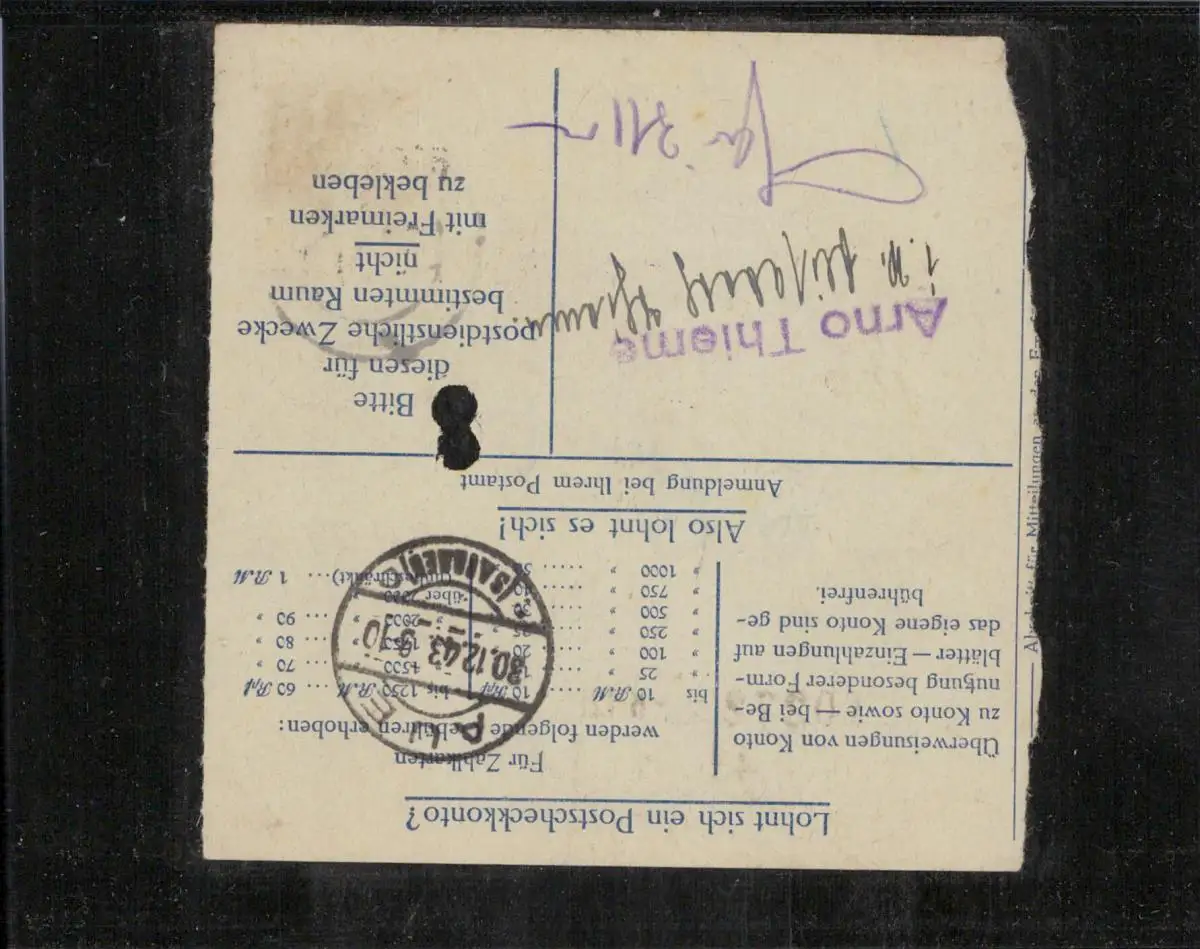 Lohnt sich ein Postscheckkonto?
Überweisungen von Konto
zu Konto sowie — bei Be-
nutzung besonderer Form-
blätter — Einzahlungen auf
das eigene Konto sind ge-
bührenfrei.
Für Zahlkarten
werden folgende Gebühren erhoben:
bis 10 RM ..... 10 Rpf
" 25 "
" 100 " ..... 20
" 250 " ..... 25 "
" 500 " ..... 30
" 750 " ..... 40
" 1000 " ..... 50
bis 1250 RM ... 60 Rpf
1500 ... 70 "
... 80 "
2000 ... 90 "
über 2000 "
(unbeschränkt) ... 1 RM
AUE
30.12.43.-9-10
(SACHSEN) C
Also lohnt es sich!
Anmeldung bei Ihrem Postamt
Arno Thieme
Bitte
diesen für
postdienstliche Zwecke
bestimmten Raum
nicht
mit Freimarken
zu bekleben